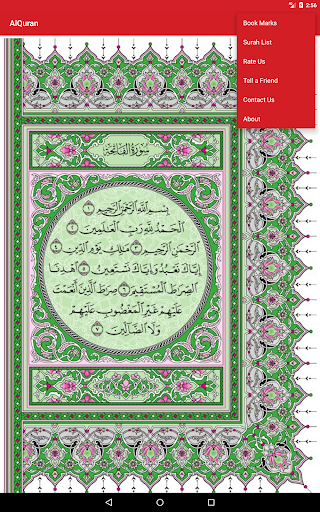 2:56
AlQuran
Book Marks
Surah List
Rate Us
Tell a Friend
Contact Us
About
سُورَةُ الْفَاتِحَةِ
بِسْمِ اللَّهِ الرَّحْمَٰنِ الرَّحِيمِ ١
الْحَمْدُ لِلَّهِ رَبِّ الْعَالَمِينَ ٢
الرَّحْمَٰنِ الرَّحِيمِ ٣ مَالِكِ يَوْمِ الدِّينِ ٤
إِيَّاكَ نَعْبُدُ وَإِيَّاكَ نَسْتَعِينُ ٥ اهْدِنَا
الصِّرَاطَ الْمُسْتَقِيمَ ٦ صِرَاطَ الَّذِينَ أَنْعَمْتَ
عَلَيْهِمْ غَيْرِ الْمَغْضُوبِ عَلَيْهِمْ
وَلَا الضَّالِّينَ ٧